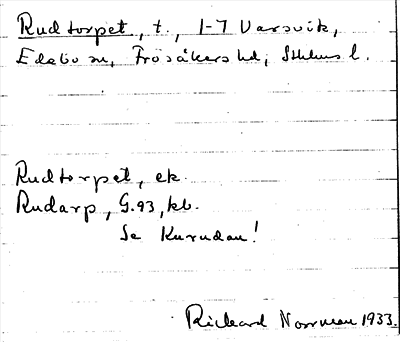 Rudtorpet, t., 1-7 Varsvik,
Edebo sn, Frösåkers hd, Sthlms l.
Rudtorpet, ek.
Rudarp, G.93, kb.
Se Kurudan!
Rickard Norrman 1933.